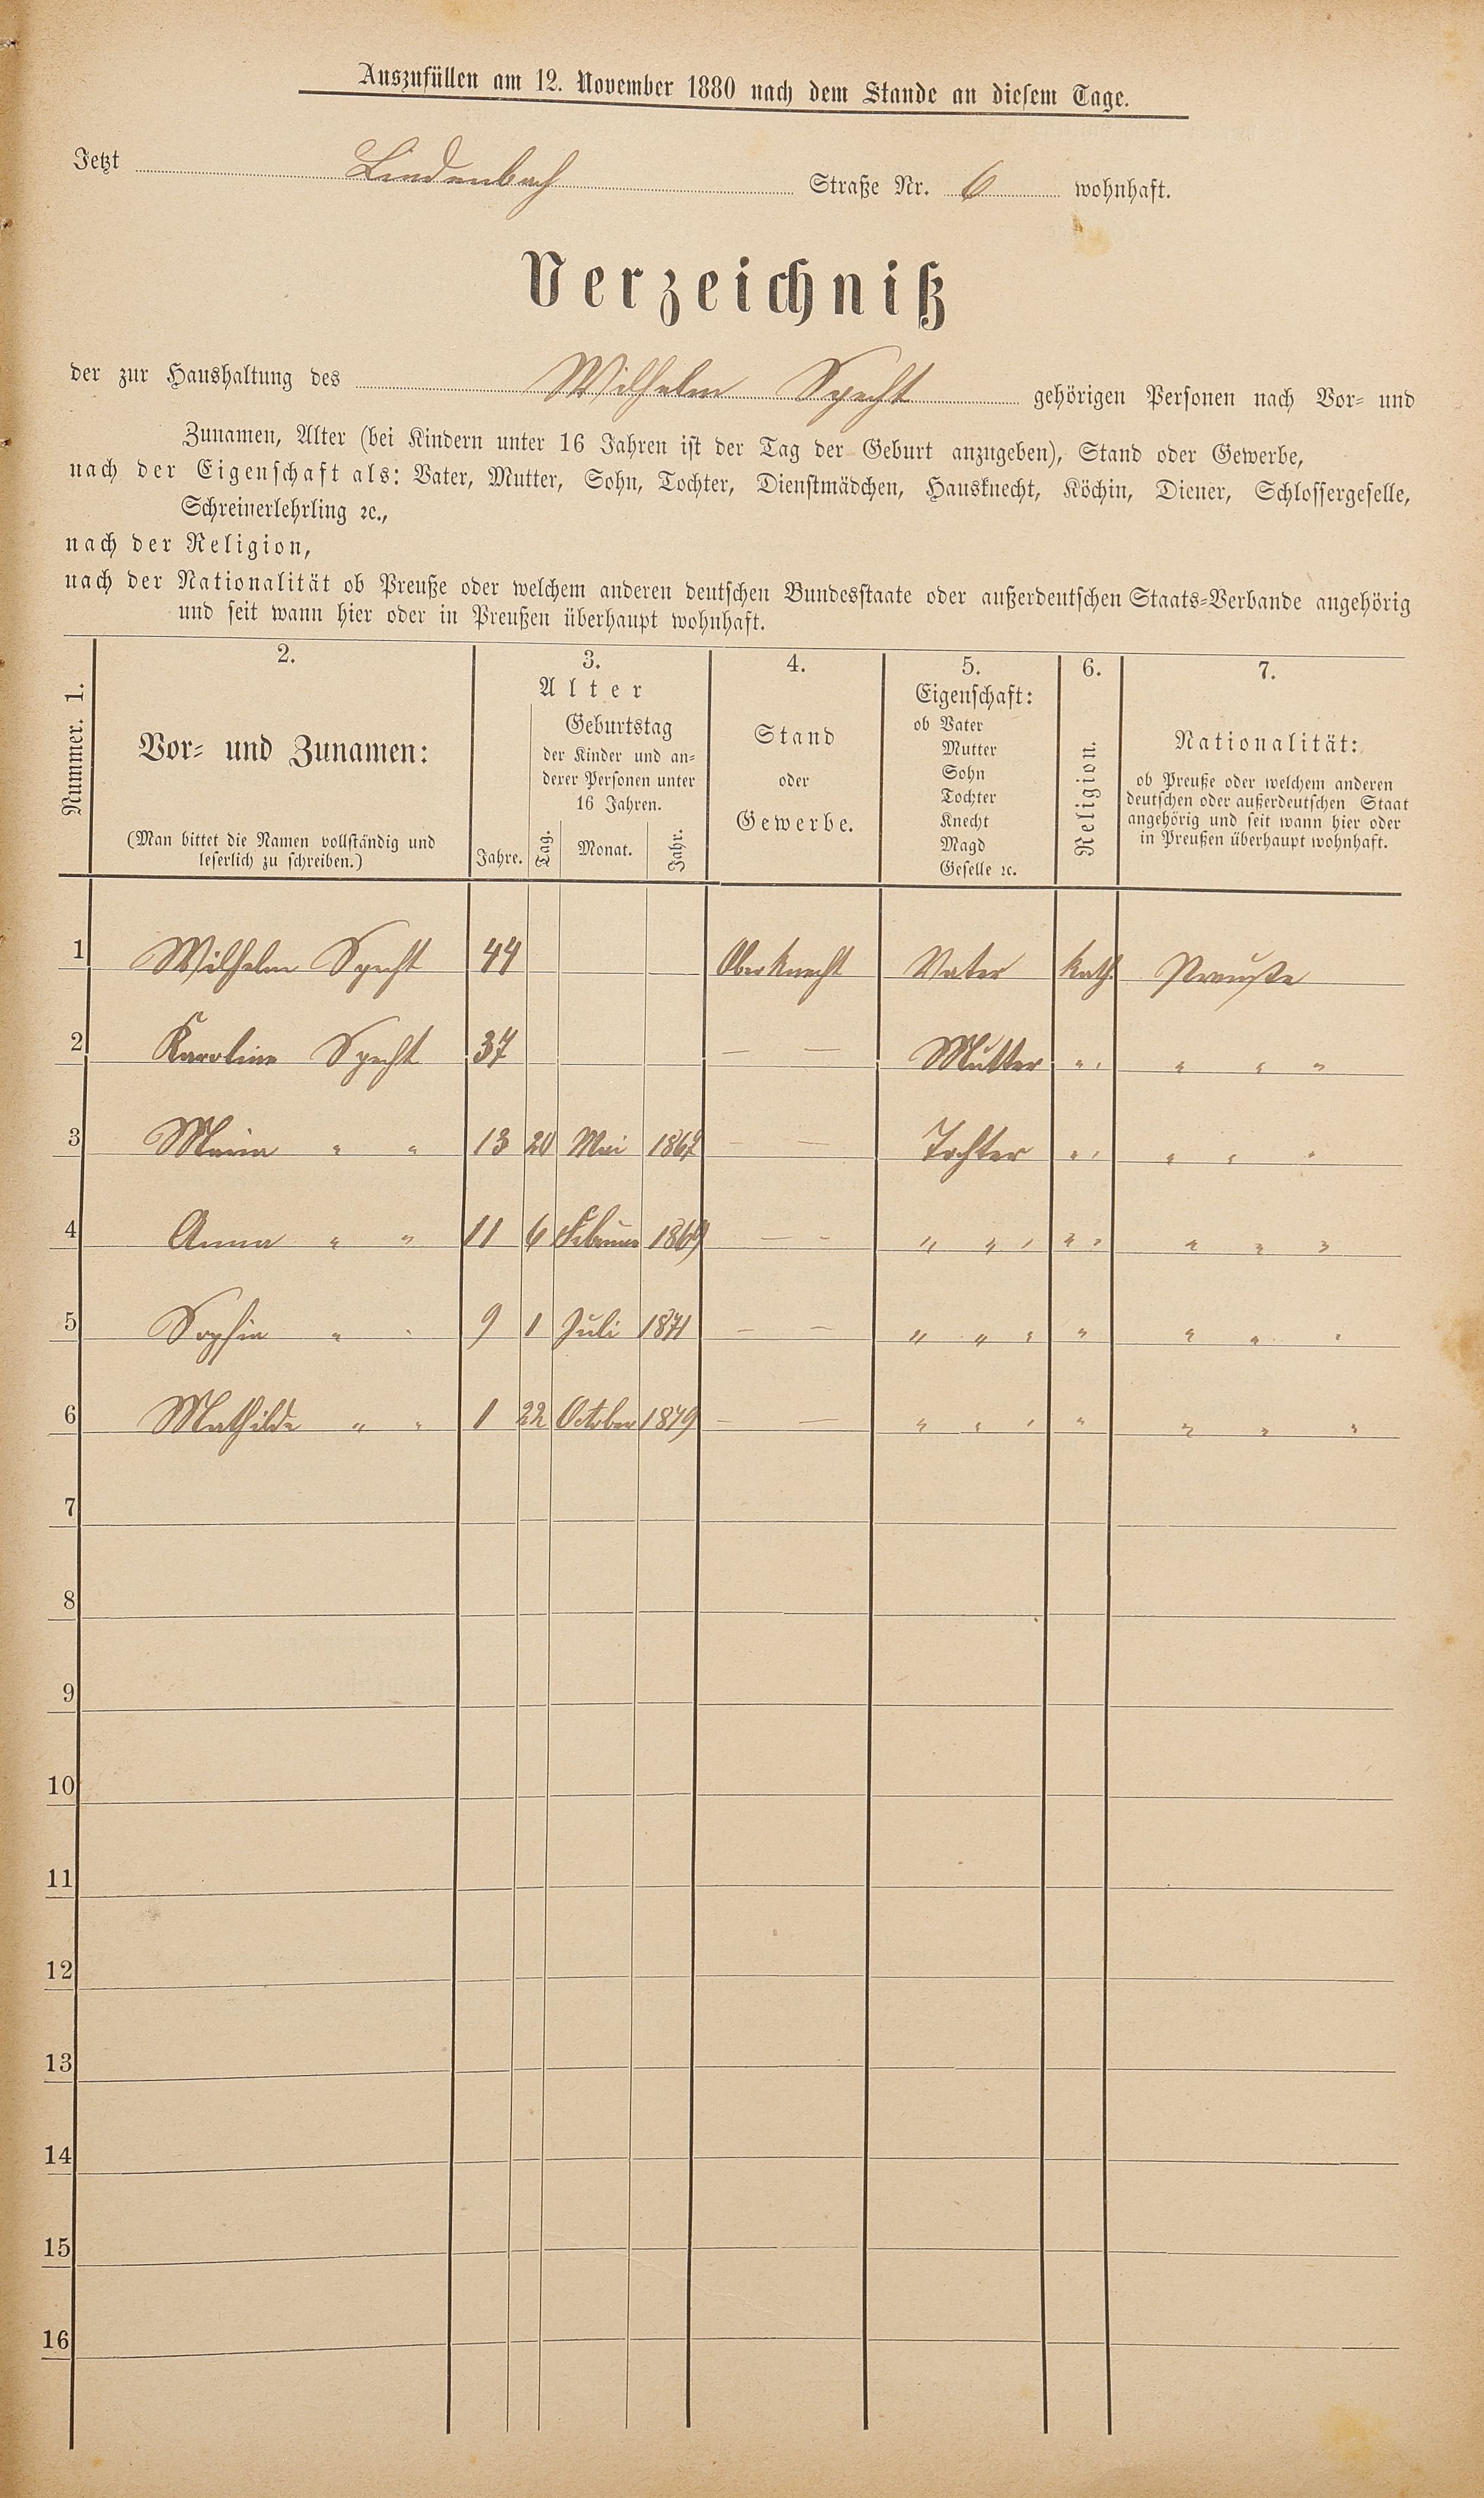 Auszufüllen am 12. November 1880 nach dem Stande an diesem Tage.
Jetzt Lindenbach Straße Nr. 6 wohnhaft.
Verzeichniß
der zur Haushaltung des Wilhelm Specht gehörigen Personen nach Vor- und
Zunamen, Alter (bei Kindern unter 16 Jahren ist der Tag der Geburt anzugeben), Stand oder Gewerbe,
nach der Eigenschaft als: Vater, Mutter, Sohn, Tochter, Dienstmädchen, Hausknecht, Köchin, Diener, Schlossergeselle,
Schreinerlehrling ꝛc.,
nach der Religion,
nach der Nationalität ob Preuße oder welchem anderen deutschen Bundesstaate oder außerdeutschen Staats-Verbande angehörig
und seit wann hier oder in Preußen überhaupt wohnhaft.
Nummer. 1.
2.
Vor- und Zunamen:
(Man bittet die Namen vollständig und
leserlich zu schreiben.)
3.
Alter
Jahre.
Geburtstag
der Kinder und an-
derer Personen unter
16 Jahren.
Tag. Monat. Jahr.
4.
Stand
oder
Gewerbe.
5.
Eigenschaft:
ob Vater
Mutter
Sohn
Tochter
Knecht
Magd
Geselle ꝛc.
6.
Religion.
7.
Nationalität:
ob Preuße oder welchem anderen
deutschen oder außerdeutschen Staat
angehörig und seit wann hier oder
in Preußen überhaupt wohnhaft.
1 Wilhelm Specht 44 Oberknecht Vater Kath. Preuße
2 Karoline Specht 37 — — Mutter " " " " "
3 " " 13 20 Mai 1867 — — Tochter " " " " "
4 Anna " " 11 6 Februar 1869 — — " " " " " " " "
5 Sophia " " 9 1 Juli 1871 — — " " " " " " "
6 Mathilde " " 1 22 October 1879 — — " " " " " " "
7
8
9
10
11
12
13
14
15
16